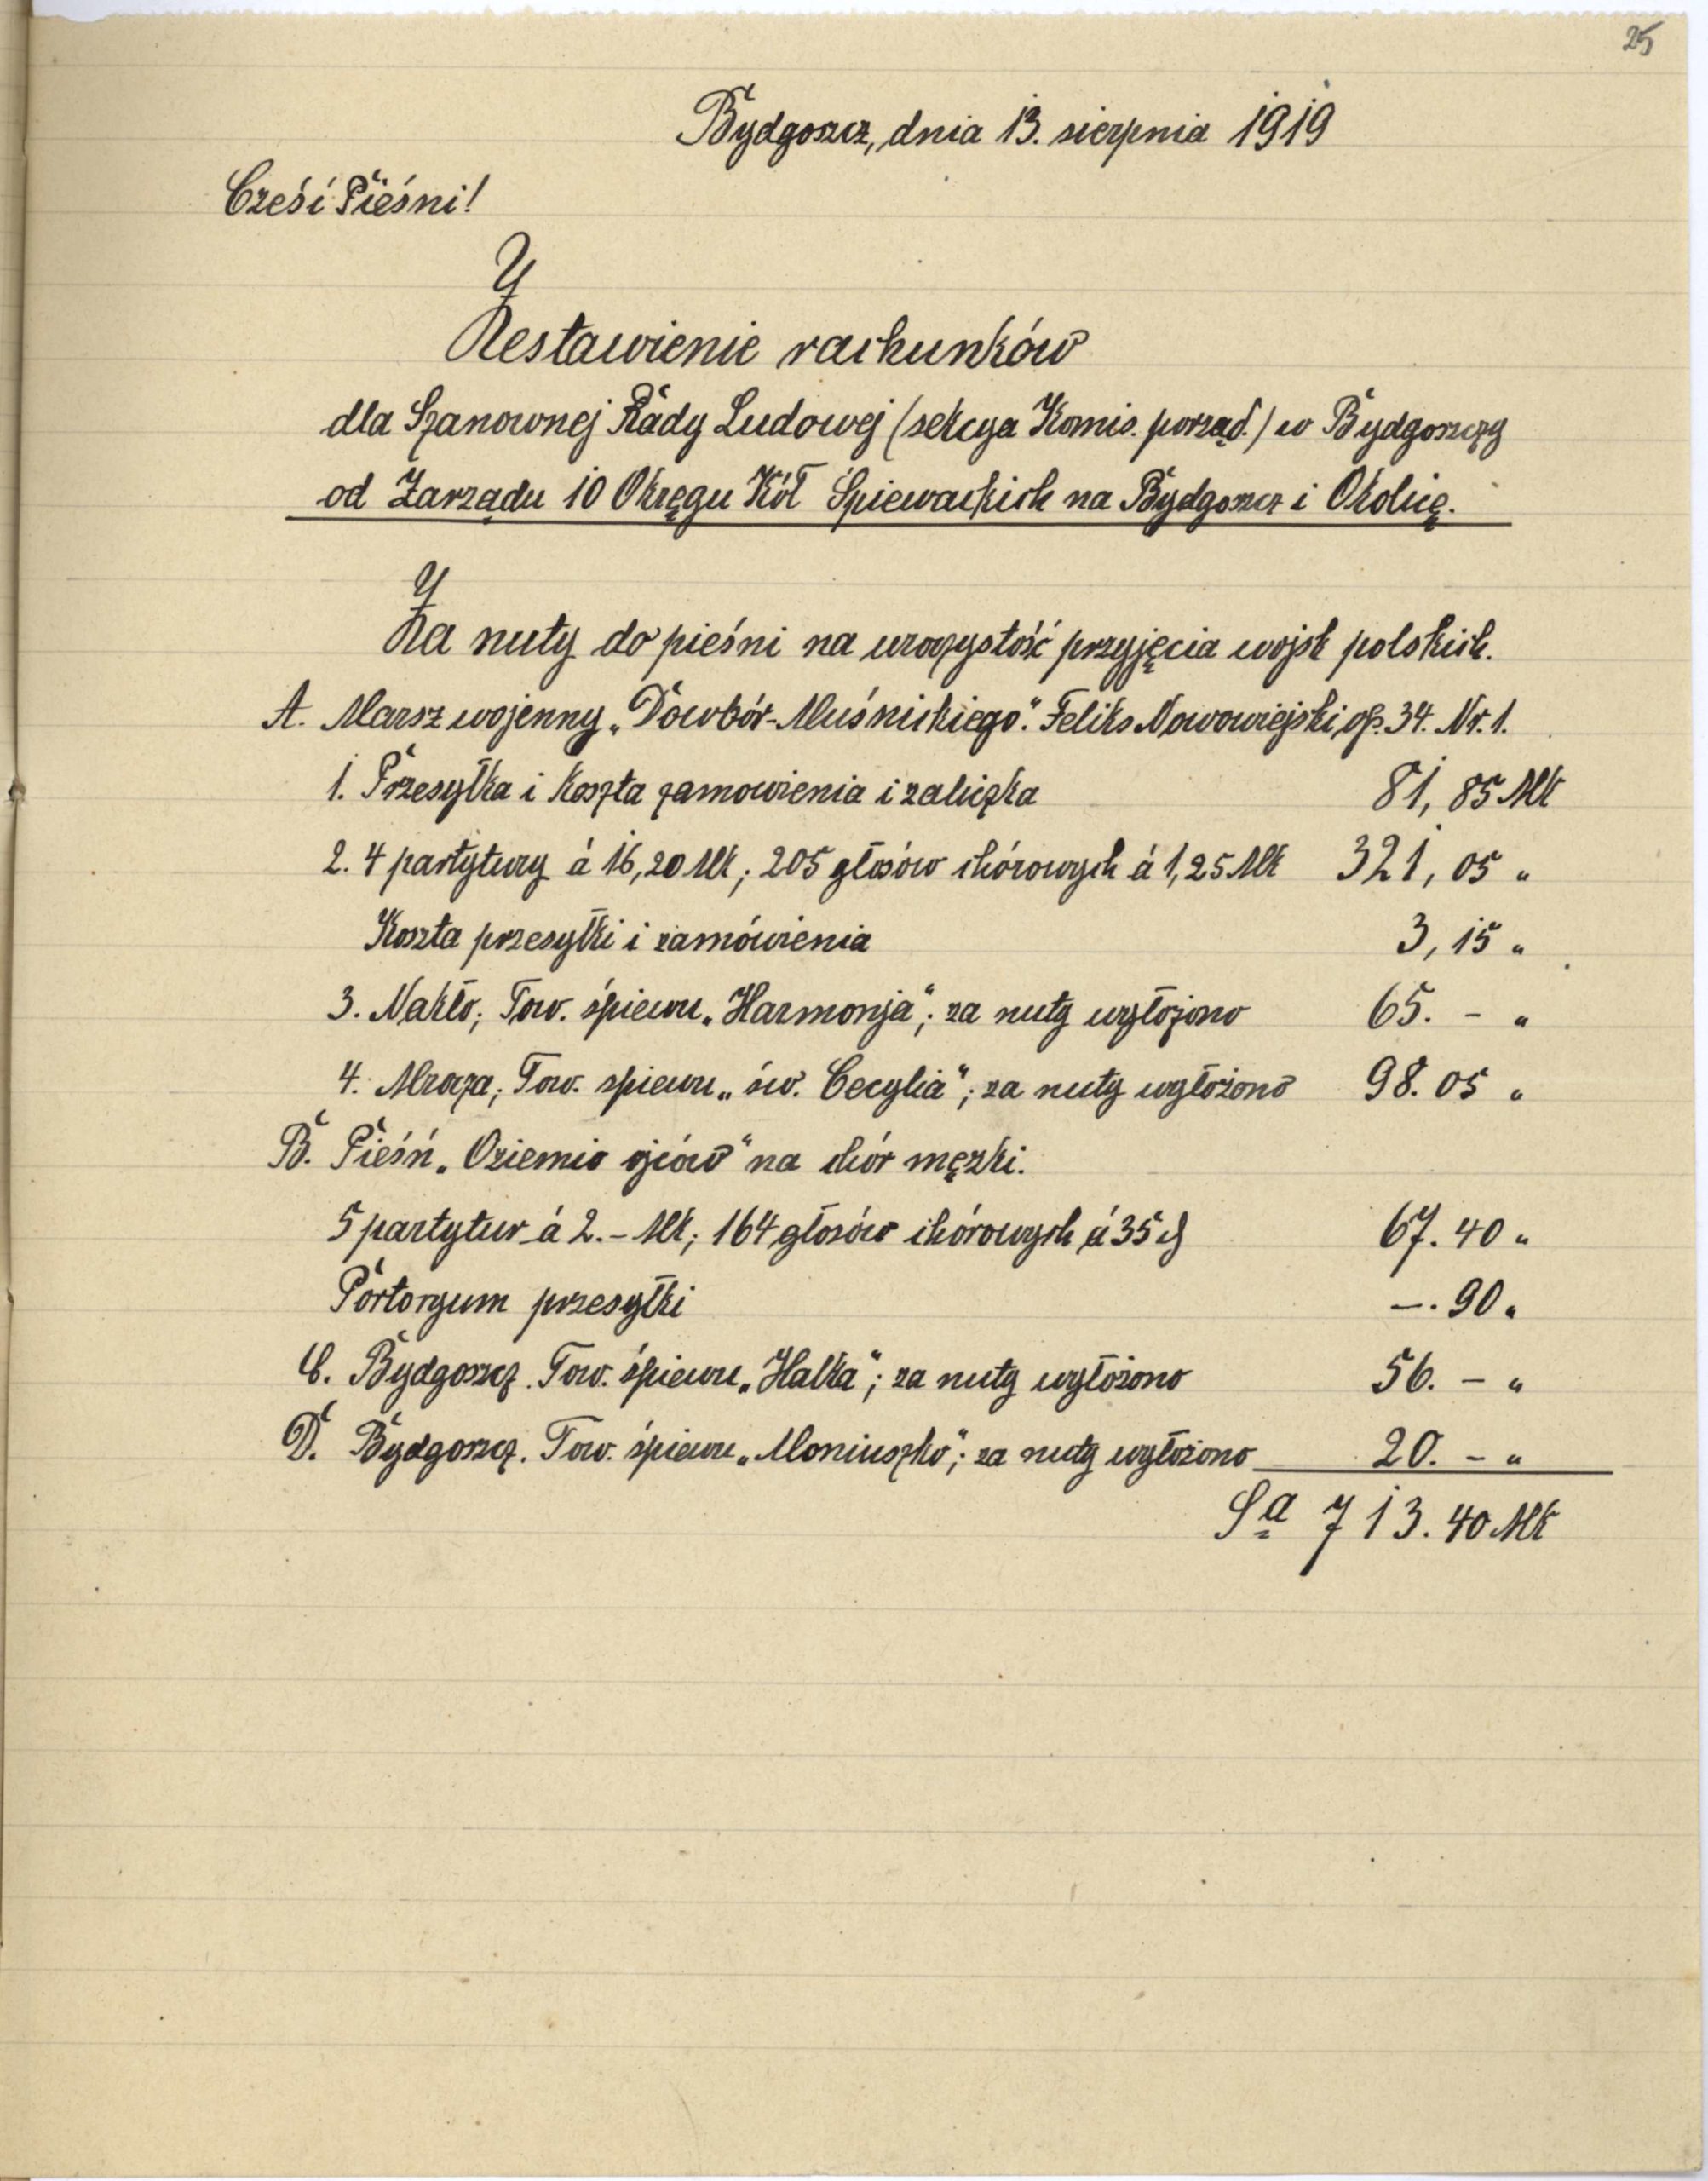 25
Bydgoszcz, dnia 13. sierpnia 1919
Cześć Pieśni!
Zestawienie rachunków
dla Szanownej Rady Ludowej (sekcya Komis. porząd.) w Bydgoszczy
od Zarządu 10 Okręgu Kół Śpiewackich na Bydgoszcz i Okolicę.
Za nuty do pieśni na uroczystość przyjęcia wojsk polskich.
A. Marsz wojenny „Dowbór-Muśnickiego“. Feliks Nowowiejski, op. 34. Nr. 1.
1. Przesyłka i koszta zamowienia i zaliczka 81,85 Mk
2. 4 partytury á 16,20 Mk; 205 głosów chórowych á 1,25 Mk 321,05 "
Koszta przesyłki i zamówienia 3,15 "
3. Nakło; Tow. śpiewu „Harmonja“; za nuty wyłożono 65. - "
4. Mrocza; Tow. spiewu „św. Cecylia“; za nuty wyłożono 98.05 "
B. Pieśń „O ziemio ojców“ na chór męzki.
5 partytur á 2.- Mk; 164 głosów chórowych á 35 ₰ 67.40 "
Portoryum przesyłki —.90 "
C. Bydgoszcz. Tow. śpiewu „Halka“; za nuty wyłożono 56. - "
D. Bydgoszcz. Tow. śpiewu „Moniuszko“; za nuty wyłożono 20. - "
Sa 713.40 Mk